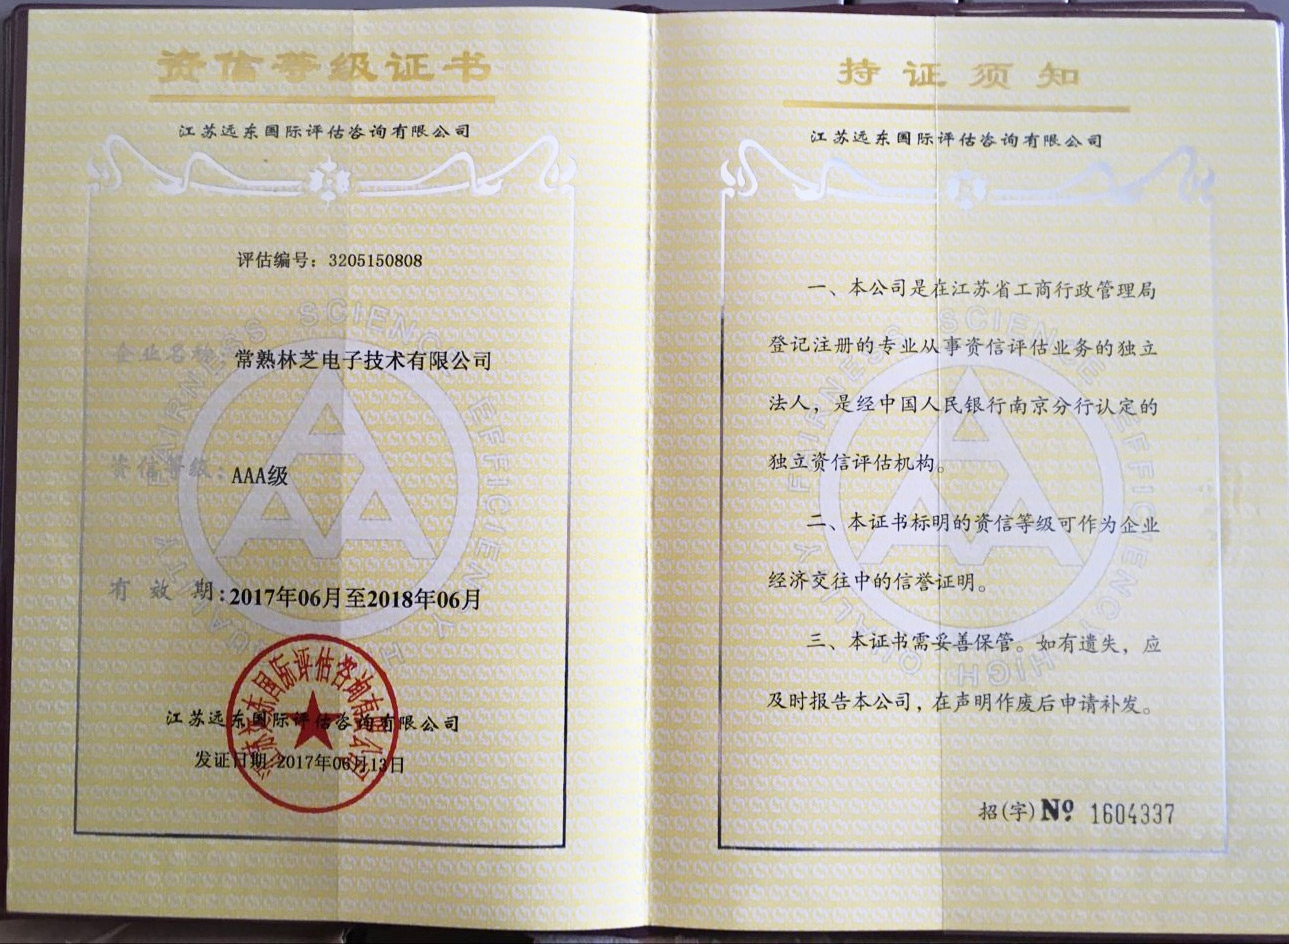 资信等级证书
江苏远东国际评估咨询有限公司
评估编号：3205150808
企业名称：常熟林芝电子技术有限公司
资信等级：AAA级
有效期：2017年06月至2018年06月
江苏远东国际评估咨询有限公司
江苏远东国际评估咨询有限公司
发证日期：2017年06月13日
持证须知
江苏远东国际评估咨询有限公司
一、本公司是在江苏省工商行政管理局
登记注册的专业从事资信评估业务的独立
法人，是经中国人民银行南京分行认定的
独立资信评估机构。
二、本证书标明的资信等级可作为企业
经济交往中的信誉证明。
三、本证书需妥善保管。如有遗失，应
及时报告本公司，在声明作废后申请补发。
招(字) No 1604337
AAA
SCIENCE EFFICIENCY
AAA
FIRNESS SCIENCE EFFICIENCY HIGH QUALITY